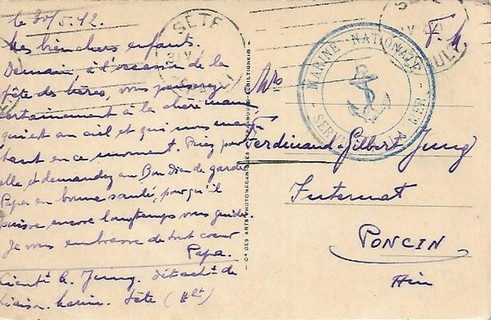 le 30/5.42
Mes bien chers enfants.
Demain, à l'occasion de la
fête des mères, vous penserez
certainement à la chère maman
qui est au ciel et qui nous manque
tant en ce moment. Priez pour
elle et demandez au Bon Dieu de garder
Papa en bonne santé, pour qu'il
puisse encore longtemps vous guider
Je vous embrasse de tout coeur
Papa.
Jung, Détach' de
liaison. marin. Sète (Hlt)
SETE
MARINE NATIONALE
SERVICE À LA MER
F. M
Ferdinand-Gilbert Jung
Internat
PONCIN
Ain